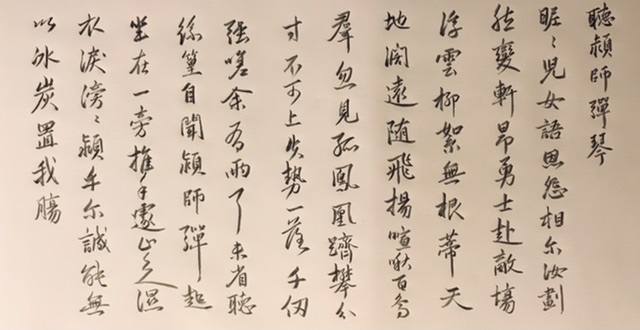 聽穎師彈琴
昵々兒女語恩怨相尔汝劃
然變軒昂勇士赴敵場
浮雲柳絮無根蒂天
地闊遠随飛揚喧啾百鳥
羣忽見孤鳳凰躋攀分
寸不可上失勢一落千仞
強嗟余有兩耳未省聽
絲篁自聞穎師彈起
坐在一旁推手遽止之濕
衣淚滂々穎乎尔誠能無
以冰炭置我腸